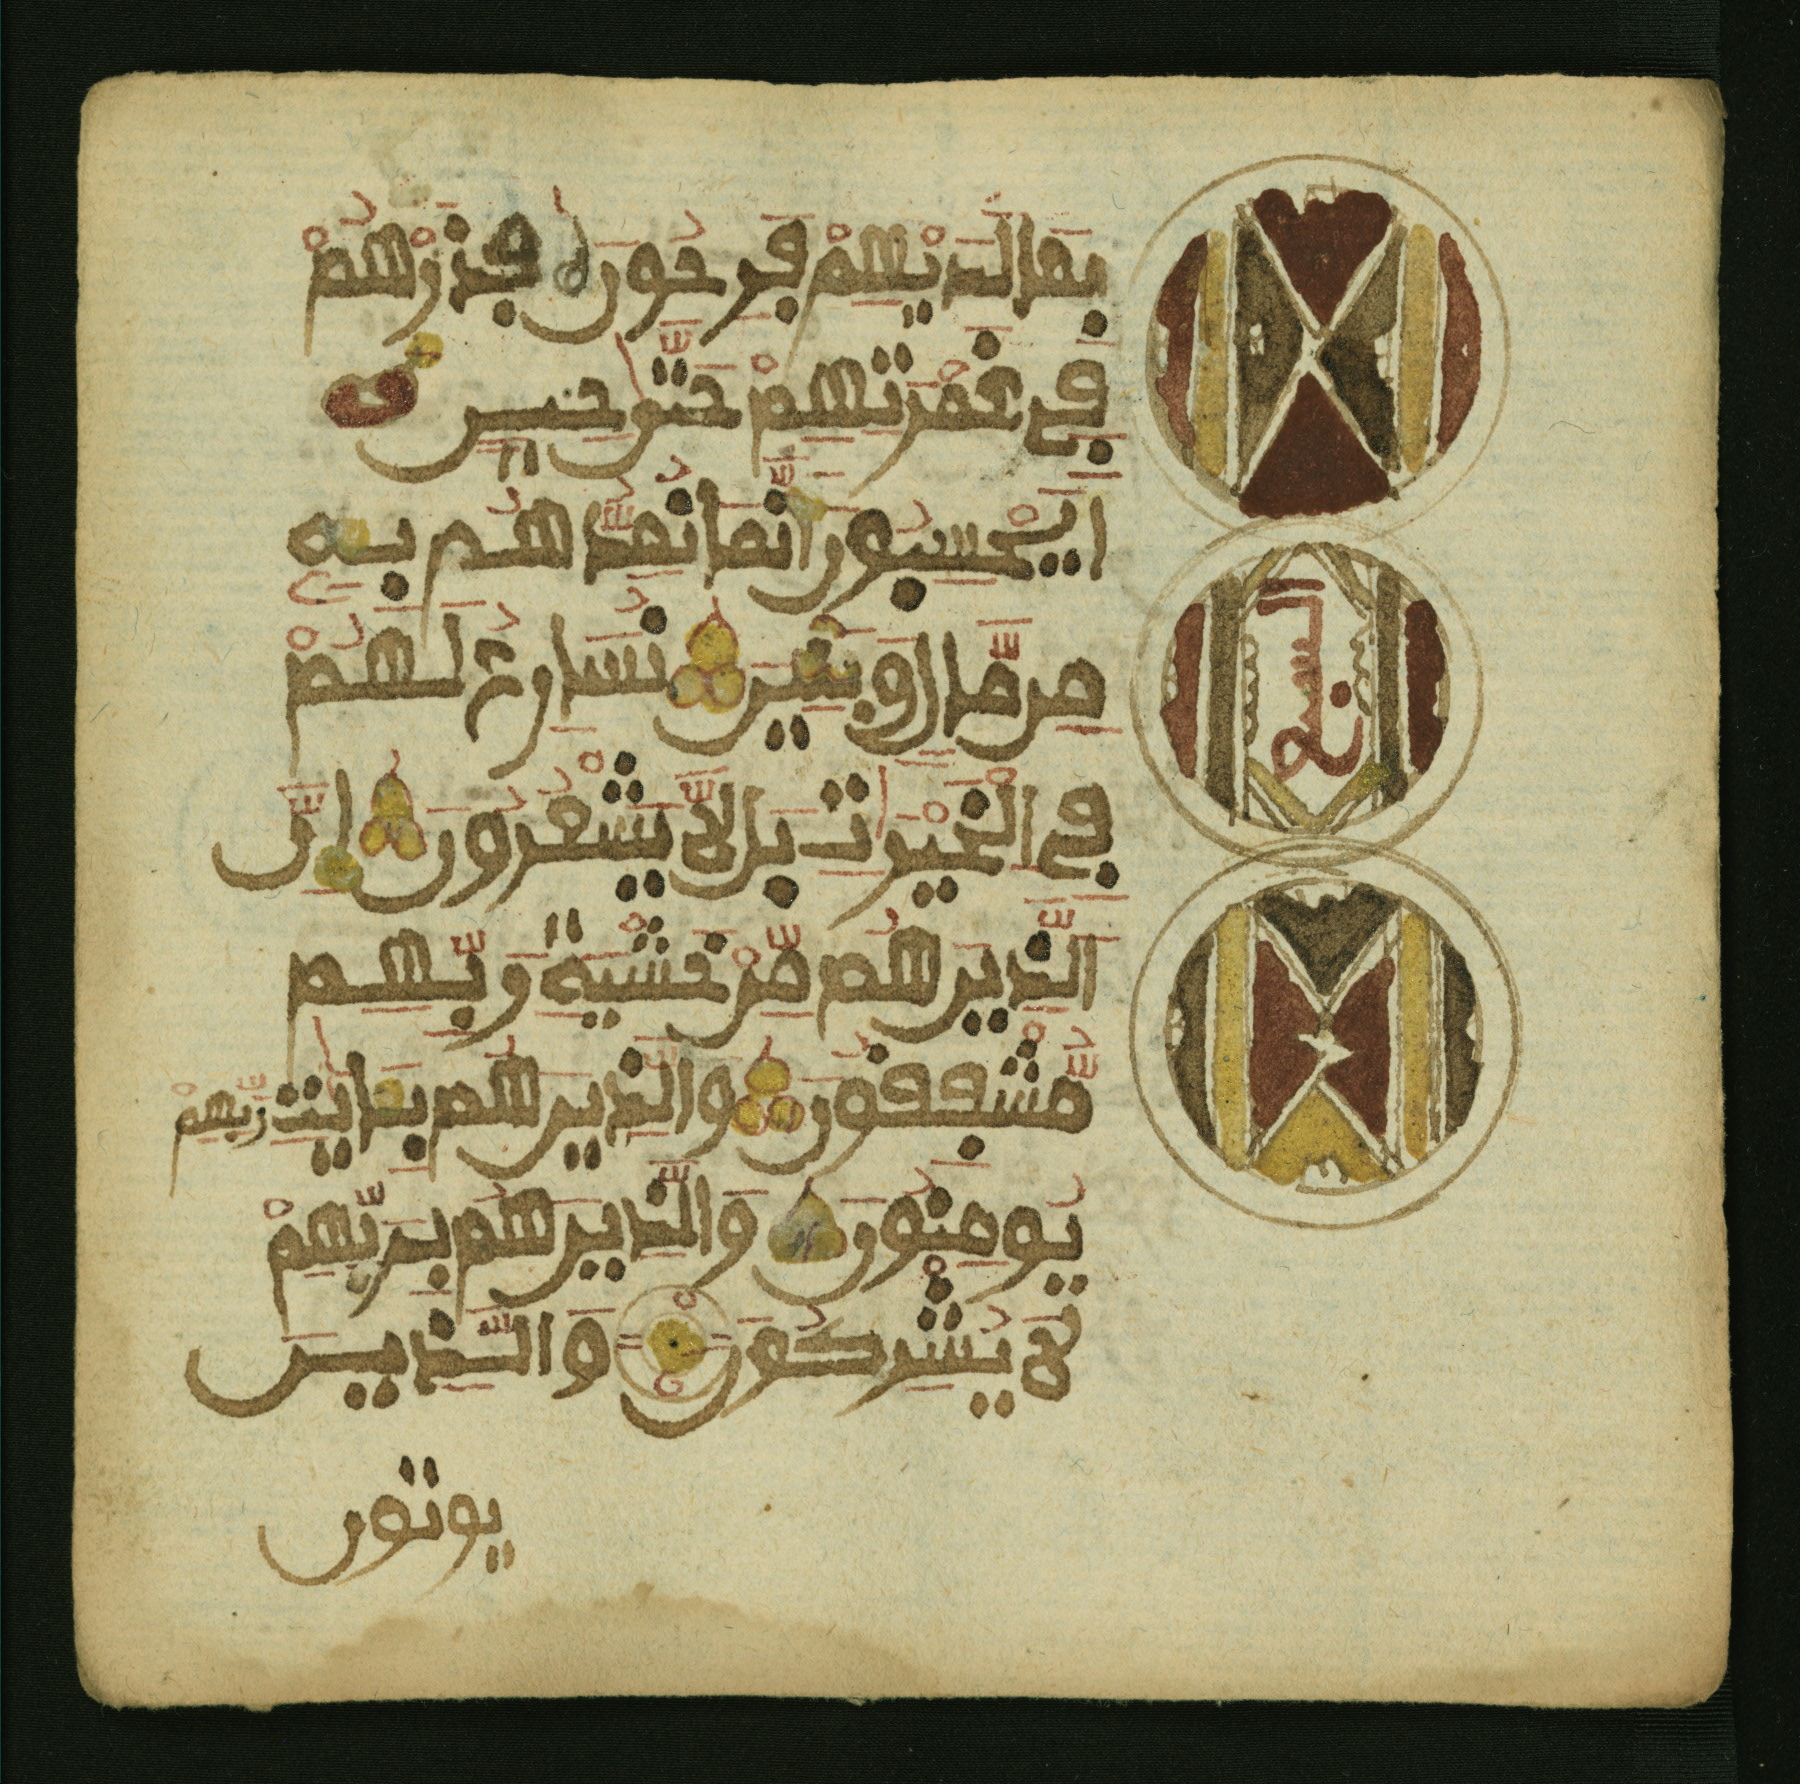 بِمَا لَدَيْهِمْ فَرِحُونَ فَذَرْهُمْ
فِي غَمْرَتِهِمْ حَتَّىٰ حِينٍ
اَيَحْسِبُونَ أَنَّمَا نُمِدُّهُم بِهِ
مِن مَّالٍ وَبَنِينَ نُسَارِعُ لَهُمْ
فِي الْخَيْرَٰتِ بَل لَّا يَشْعُرُونَ إِنَّ
الَّذِينَ هُم مِّنْ خَشْيَةِ رَبِّهِم
مُّشْفِقُونَ وَالَّذِينَ هُم بِـَٔايَٰتِ رَبِّهِمْ
يُومِنُونَ وَالَّذِينَ هُم بِرَبِّهِمْ
لَا يُشْرِكُونَ وَالَّذِينَ
يوتون